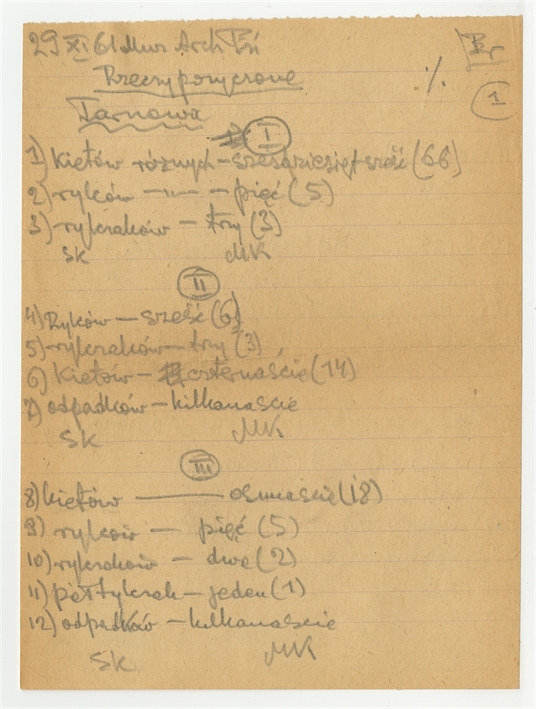 29 XI 61 Muz Arch Pń
Br
Rzeczy pożyczone
%
1
Tarnowa
I
1) kiełów różnych - sześćdziesiąt sześć (66)
2) ryków -"- - pięć (5)
3) rylcraków - trzy (3)
SK MK
II
4) Ryków - sześć (6)
5) rylcraków - trzy (3)
6) kiełów - czternaście (14)
7) odpadków - kilkanaście
SK MK
III
8) kiełów - osmnaście (18)
9) rylców - pięć (5)
10) rylcraków - dwa (2)
11) półtylczak - jeden (1)
12) odpadków - kilkanaście
SK MK